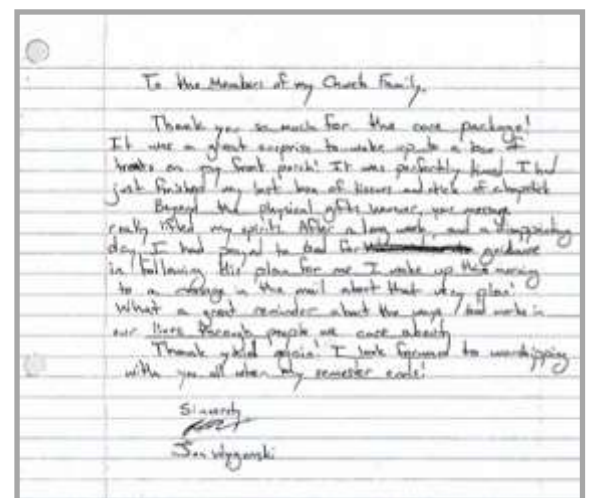 To the Members of my Church Family,
Thank you so much for the care package!
It was a great surprise to wake up to a box of
treats on my front porch! It was perfectly timed I had
just finished my last box of tissues and stick of chapstick
Beyond the physical gifts however, your message
really lifted my spirits. After a long week, and a disappointing
day, I had prayed to God for guidance
in following His plan for me. I woke up this morning
to a message in the mail about that very plan!
What a great reminder about the ways God works in
our lives through people we care about.
Thank y'all again! I look forward to worshipping
with you all when my semester ends!
Sincerely